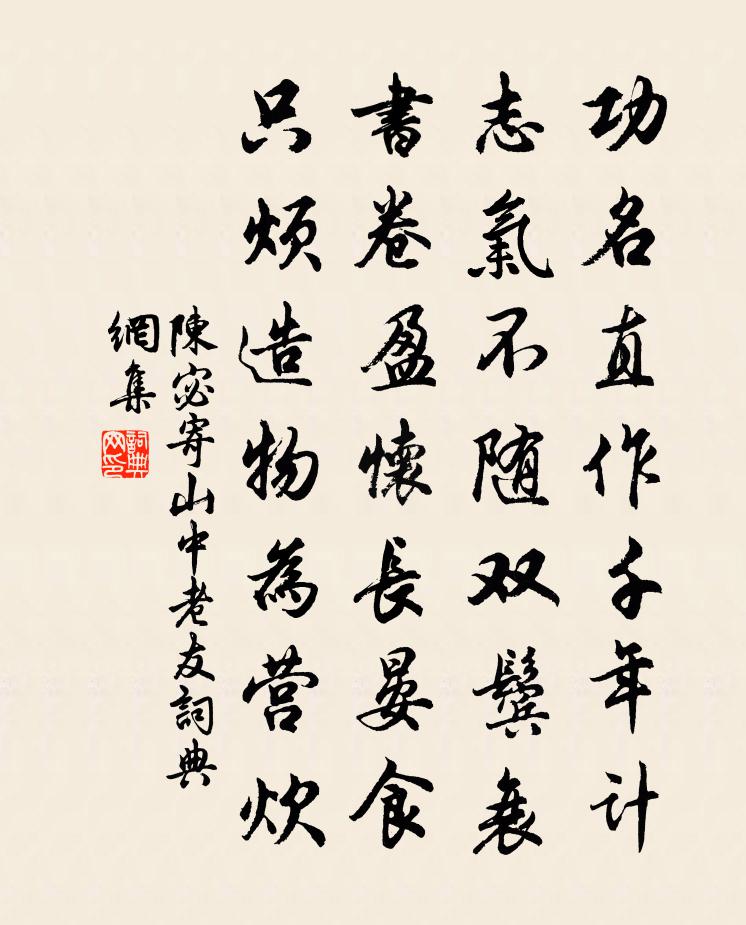 功名直作千年计
志氣不随双鬓衰
書卷盈懷長晏食
只烦造物為营炊
陳宓寄山中老友詞典
網集
詞典
网印